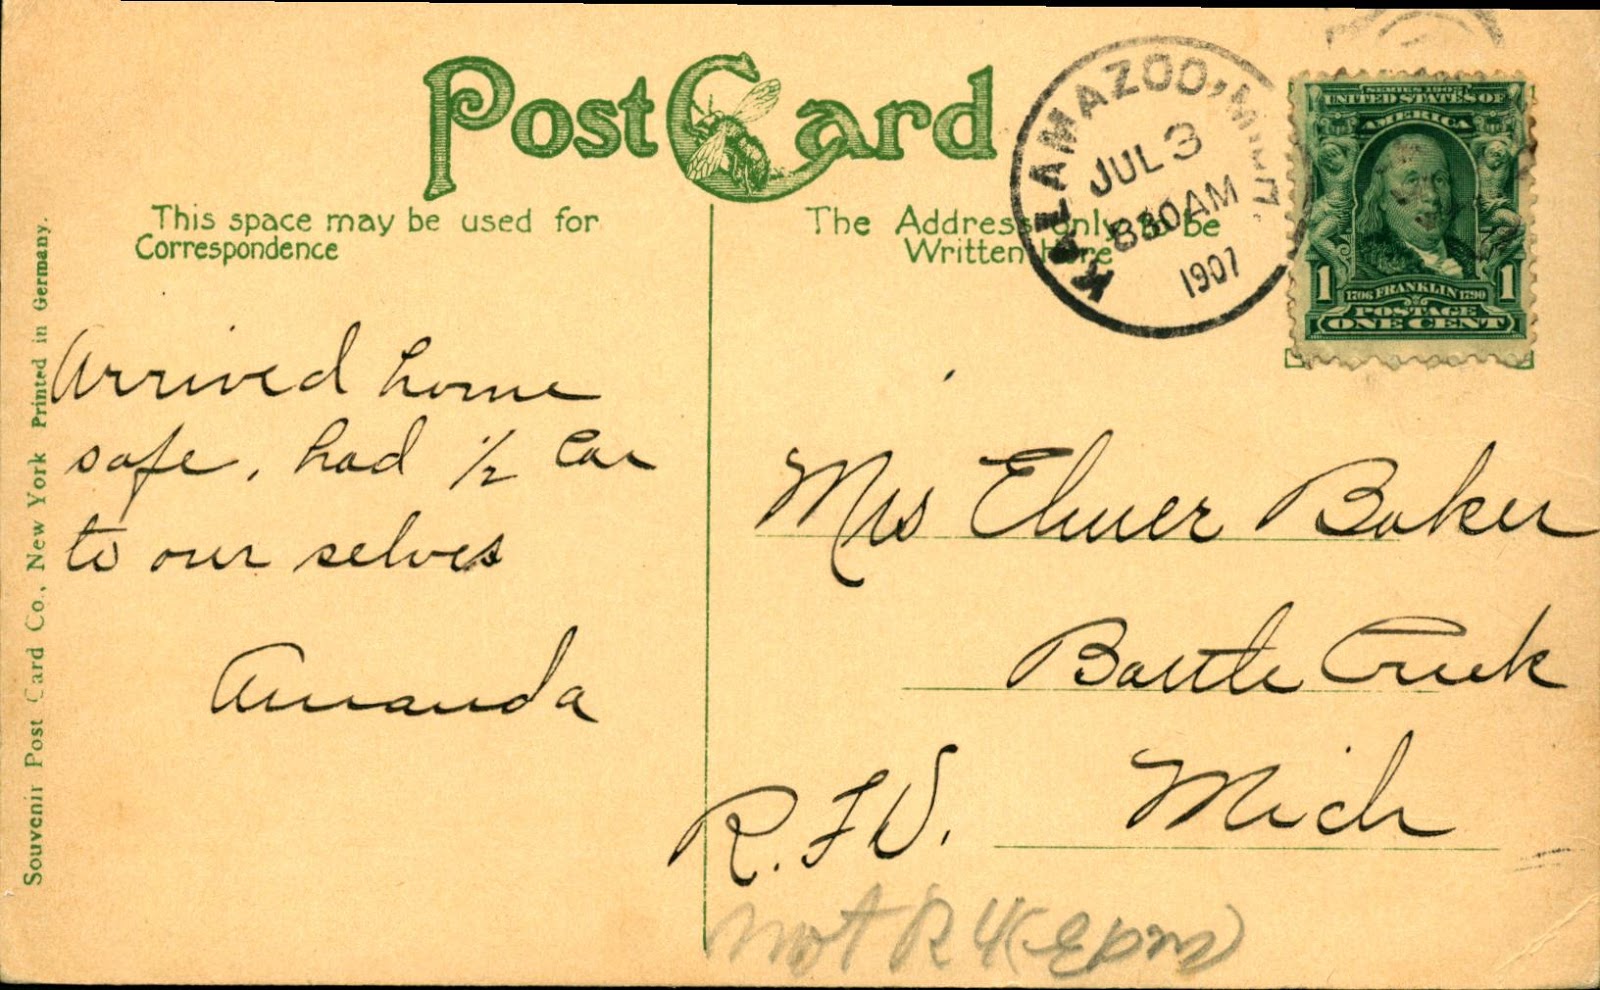 Post Card
This space may be used for
Correspondence
The Address only to be
Written here
KALAMAZOO, MICH.
JUL 3
830AM
1907
SERIES 1902
UNITED STATES OF
AMERICA
1 1
1706 FRANKLIN 1790
POSTAGE
ONE CENT
Souvenir Post Card Co., New York Printed in Germany.
Arrived home
safe, had 1/2 Car
to our selves
Amanda
Mrs Elmer Baker
Battle Creek
Mich
R.F.D.
not R 4